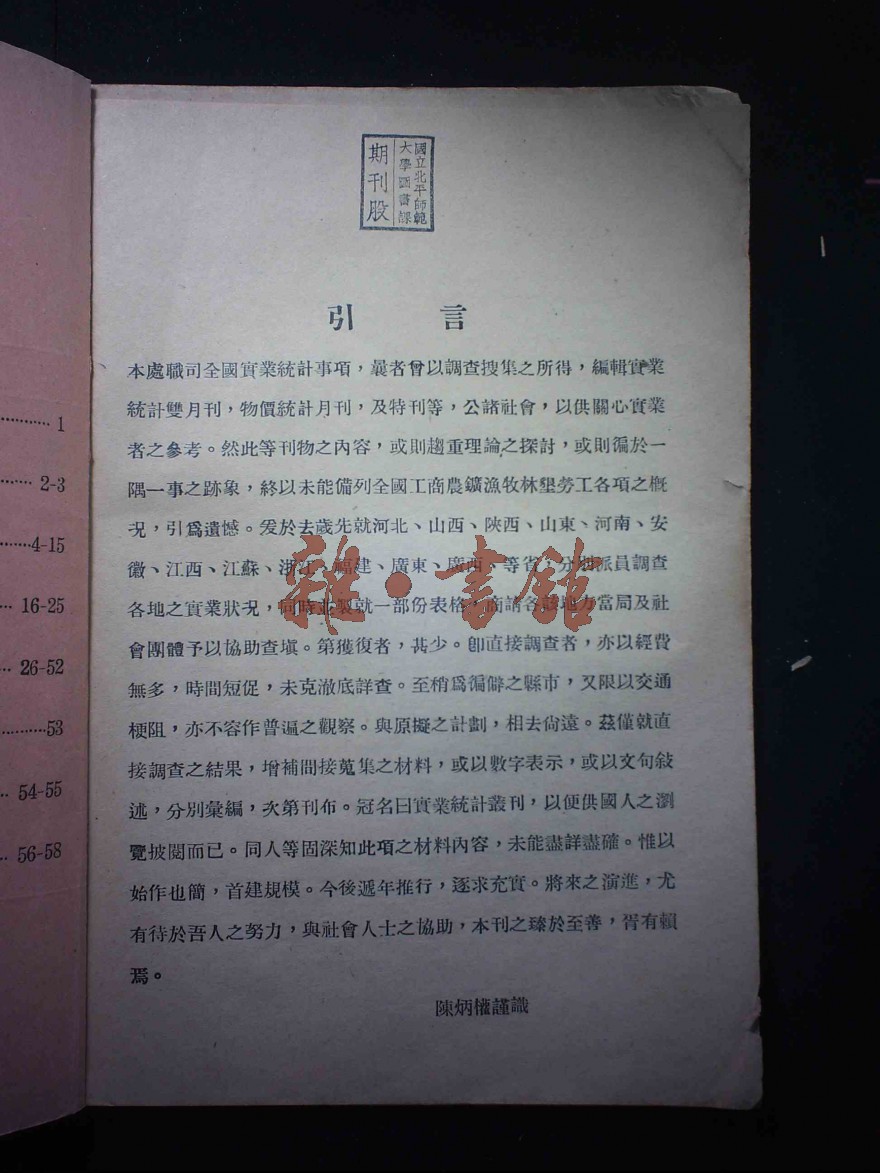 國立北平師範
大學圖書課
期刊股
引 言
本處職司全國實業統計事項，曩者曾以調查搜集之所得，編輯實業
統計雙月刊，物價統計月刊，及特刊等，公諸社會，以供關心實業
者之參考。然此等刊物之內容，或則趨重理論之探討，或則徧於一
隅一事之跡象，終以未能備列全國工商農鑛漁牧林墾勞工各項之槪
況，引爲遺憾。爰於去歲先就河北、山西、陝西、山東、河南、安
徽、江西、江蘇、浙江、福建、廣東、廣西、等省，分別派員調查
各地之實業狀況，同時並製就一部份表格，商請各該地方當局及社
會團體予以協助查塡。第獲復者，甚少。卽直接調查者，亦以經費
無多，時間短促，未克澈底詳查。至稍爲徧僻之縣市，又限以交通
梗阻，亦不容作普遍之觀察。與原擬之計劃，相去尙遠。茲僅就直
接調查之結果，增補間接蒐集之材料，或以數字表示，或以文句敍
述，分別彙編，次第刊布。冠名曰實業統計叢刊，以便供國人之瀏
覽披閱而已。同人等固深知此項之材料內容，未能盡詳盡確。惟以
始作也簡，首建規模。今後遞年推行，逐求充實。將來之演進，尤
有待於吾人之努力，與社會人士之協助，本刊之臻於至善，胥有賴
焉。
陳炳權謹識
雜·書館
1
2-3
4-15
16-25
26-52
53
54-55
56-58